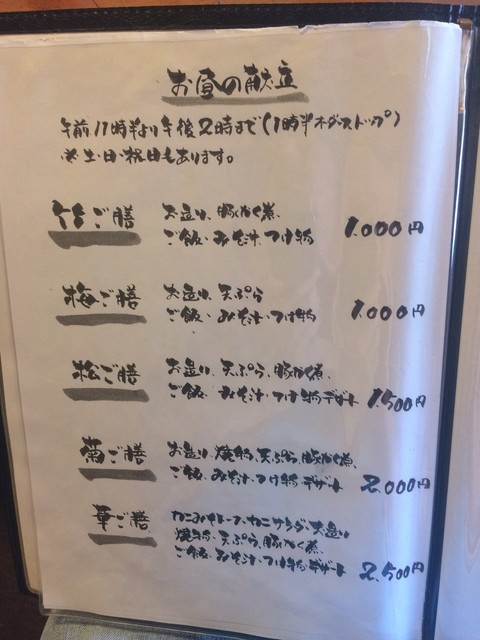 お昼の献立
午前11時半より午後2時まで(1時半オーダーストップ)
※土・日・祝日もあります。
竹ご膳 お造り、豚かく煮、
ご飯・みそ汁・つけ物 1.000円
梅ご膳 お造り、天ぷら
ご飯・みそ汁・つけ物 1.000円
松ご膳 お造り、天ぷら、豚かく煮、
ご飯・みそ汁・つけ物 デザート 1.500円
菊ご膳 お造り、焼物、天ぷら、豚かく煮、
ご飯・みそ汁・つけ物 デザート 2.000円
華ご膳 カニサラダ、お造り
焼物、天ぷら、豚かく煮、
ご飯・みそ汁・つけ物 デザート 2.500円